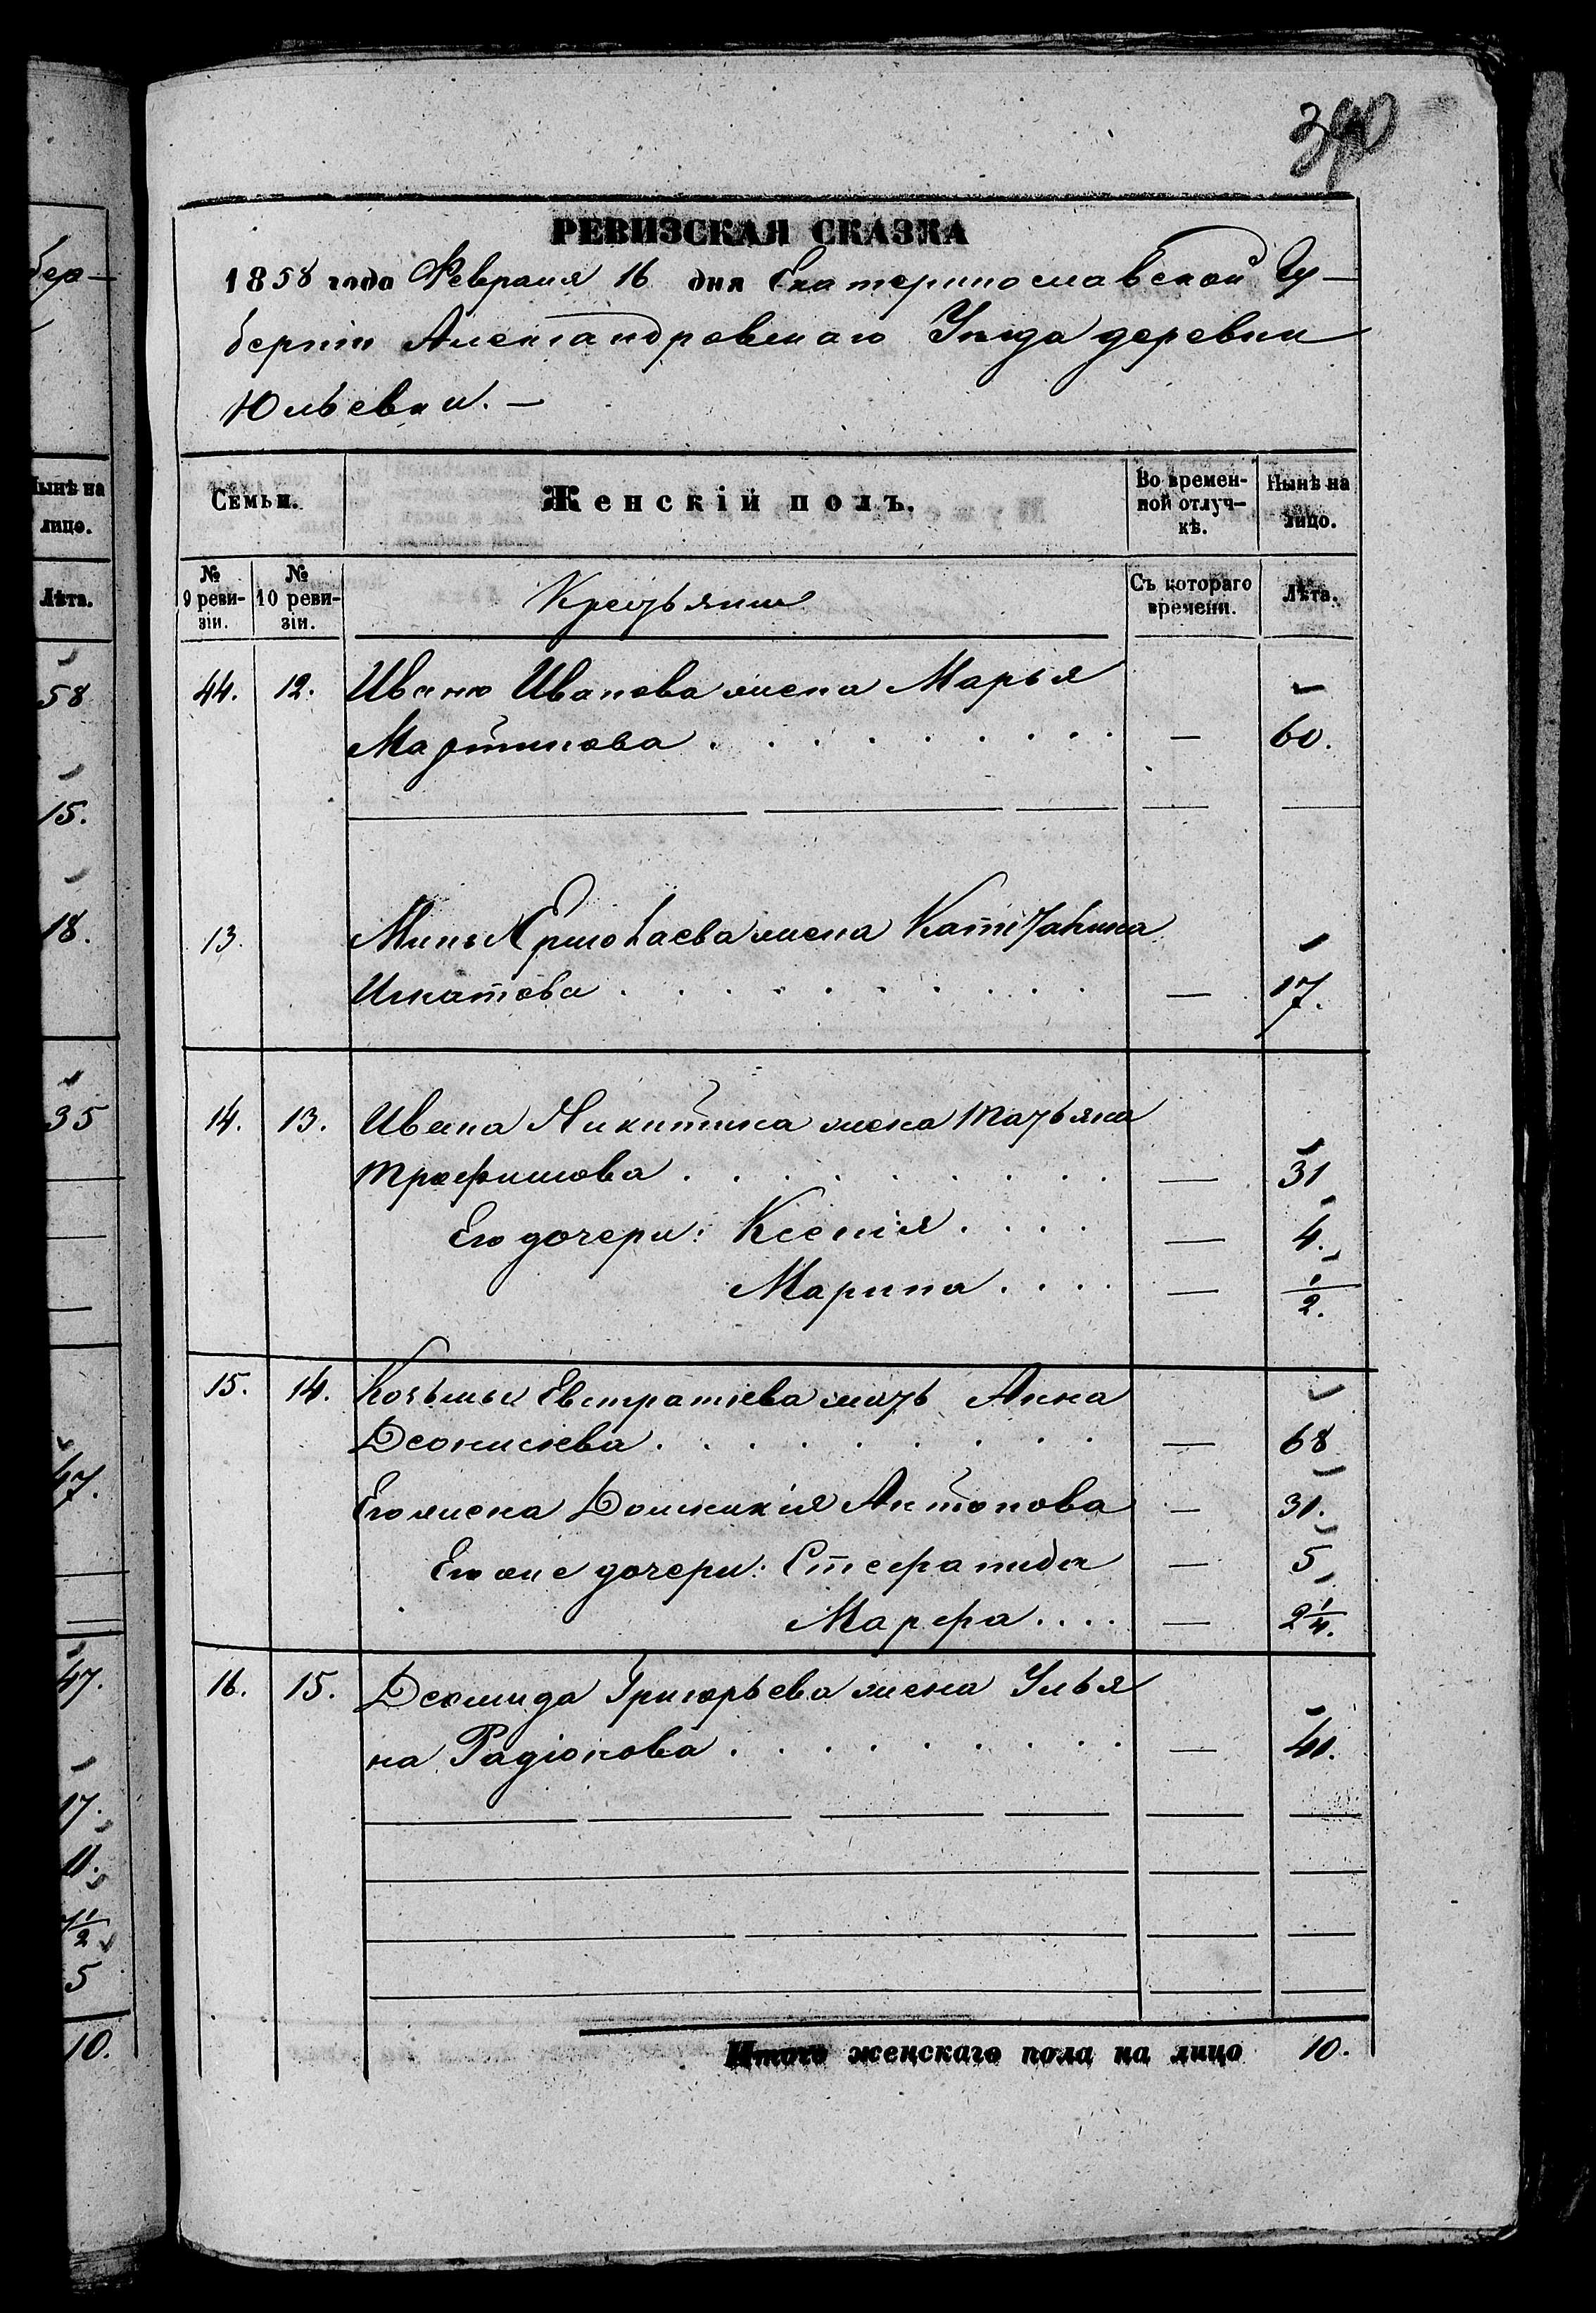 390
РЕВИЗСКАЯ СКАЗКА
1858 года Февраля 16 дня Екатеринославской Гу-
берніи Александровскаго Уѣзда деревни
Юльевки. —
Семьи.
Женскій полъ.
Во времен-
ной отлуч-
кѣ.
Нынѣ на
лицо.
№
9 реви-
зіи.
№
10 реви-
зіи.
Крестьяне
Съ котораго
времени.
Лѣта.
44. 12. Ивана Иванова жена Марья
Мартинова . . . . . . . . — 60.
13. жена
Игнатова . . . . . . . . . — 17.
14. 13. Ивана Никитина жена Татьяна
Трофимова . . . . . . . . — 31
Его дочери: Ксенія . . . . — 4.
Марина . . . . — 1/2.
15. 14. Козьмы Евстратіева мать Анна
Деонисіева . . . . . . . . . — 68
Его жена Домникія Антонова — 31.
Его же дочери: Стефанида — 5
Марфа . . . . — 2 1/4.
16. 15. Деомида Григорьева жена Улья
на Радіонова . . . . . . . . — 41.
Итого женскаго пола на лицо 10.
бер-
Нынѣ на
лицо.
Лѣта.
58
15.
18.
35
47.
47.
17.
11.
5
10.